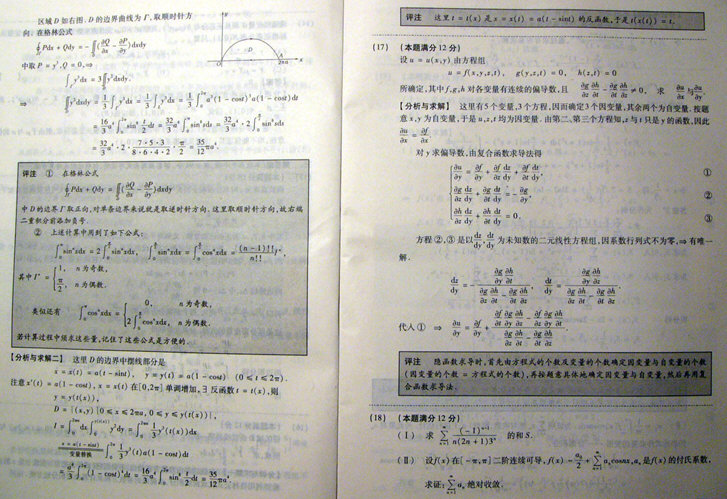 区域 D 如右图. D 的边界曲线为 Γ, 取顺时针方
向. 在格林公式
∮_Γ Pdx + Qdy = -∬_D (∂Q/∂x - ∂P/∂y)dxdy
中取 P = y³, Q = 0, ⇒
∫_Γ y³dx = 3∬_D y²dxdy.
y
D
A
O
2πa
x
⇒ ∬_D y²dxdy = 1/3 ∫_Γ y³dx = 1/3 ∫_0^{2π} a³(1 - cost)³a(1 - cost)dt
= 32/3 a⁴ · 2 · (7×5·3)/(8·6·4·2) · π/2 = 35/12 πa⁴.
评注 ① 在格林公式
∮_Γ Pdx + Qdy = ∬_D (∂Q/∂x - ∂P/∂y)dxdy
中 D 的边界 Γ 取正向, 对单条边界来说就是取逆时针方向. 这里取顺时针方向, 故右端
二重积分前添加负号.
② 上述计算中用到了如下公式:
∫_0^π sinⁿxdx = 2∫_0^{π/2} sinⁿxdx, ∫_0^{π/2} sinⁿxdx = ∫_0^{π/2} cosⁿxdx = (n-1)!!/n!! I*,
其中 I* = { 1, n 为奇数,
π/2, n 为偶数.
类似还有 ∫_0^π cosⁿxdx = { 0, n 为奇数,
2∫_0^{π/2} cosⁿxdx, n 为偶数.
若计算过程中须求这些量, 记住了这些公式是方便的.
【分析与求解二】 这里 D 的边界中摆线部分是
x = x(t) = a(t - sint), y = y(t) = a(1 - cost) (0 ≤ t ≤ 2π).
注意 x'(t) = a(1 - cost), x = x(t) 在 [0,2π] 单调增加, ∃ 反函数 t = t(x), 则
y = y(t(x)),
D = {(x,y) | 0 ≤ x ≤ 2πa, 0 ≤ y ≤ y(t(x))},
I = ∫_0^{2πa} dx ∫_0^{y(t(x))} y²dy = ∫_0^{2πa} 1/3 y³(t(x))dx
x = a(t - sint) 变量替换 ∫_0^{2π} 1/3 y³(t)a(1 - cost)dt
= a⁴/3 ∫_0^{2π} (1 - cost)⁴dt = 16/3 a⁴ ∫_0^{2π} sin⁸ t/2 dt = 35/12 πa⁴.
评注 这里 t = t(x) 是 x = x(t) = a(t - sint) 的反函数, 于是 t(x(t)) = t.
(17) (本题满分 12 分)
设 u = u(x,y) 由方程组
u = f(x,y,z,t), g(y,z,t) = 0, h(z,t) = 0
所确定, 其中 f,g,h 对各变量有连续的偏导数, 且 ∂g/∂z ∂h/∂t - ∂g/∂t ∂h/∂z ≠ 0. 求 ∂u/∂x 与 ∂u/∂y.
【分析与求解】 这里有 5 个变量, 3 个方程, 因而确定 3 个因变量, 其余两个为自变量. 按题
意 x,y 为自变量, 于是 u,z,t 均为因变量. 由第二、第三个方程知, z 与 t 只是 y 的函数, 因此
∂u/∂x = ∂f/∂x.
对 y 求偏导数, 由复合函数求导法得
∂u/∂y = ∂f/∂y + ∂f/∂z dz/dy + ∂f/∂t dt/dy, ①
∂g/∂z dz/dy + ∂g/∂t dt/dy = -∂g/∂y, ②
∂h/∂z dz/dy + ∂h/∂t dt/dy = 0. ③
方程 ②,③ 是以 dz/dy, dt/dy 为未知数的二元线性方程组, 因系数行列式不为零, ⇒ 有唯一
解.
代入 ① ⇒
评注 隐函数求导时, 首先由方程式的个数及变量的个数确定因变量与自变量的个数
(因变量的个数 = 方程式的个数), 再按题意具体地确定因变量与自变量, 然后再用复
合函数求导法.
(18) (本题满分 12 分)
(Ⅰ) 求 ∑_{n=1}^∞ (-1)^{n-1}/(n(2n+1)3ⁿ) 的和 S.
(Ⅱ) 设 f(x) 在 [-π,π] 二阶连续可导, f(x) = a₀/2 + ∑_{n=1}^∞ aₙcosnx, aₙ 是 f(x) 的付氏系数.
求证: ∑_{n=1}^∞ aₙ 绝对收敛.